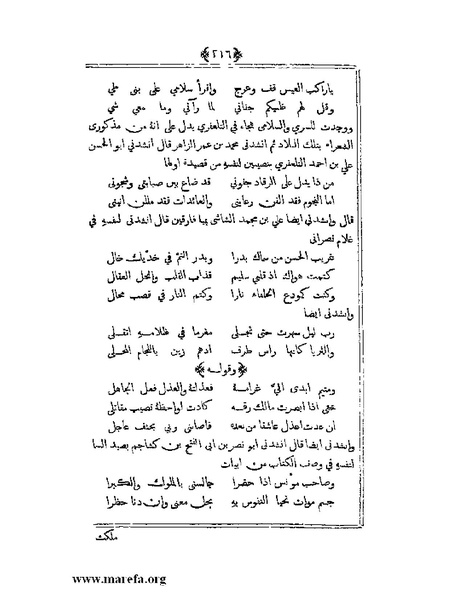 ﴿٢١٦﴾
ياراكب العيس قف وعرج واقرأ سلامي على بنى على
وقل لهم عليكم جناني لما رآني وما معي شي
ووجدت للسري والسلامي هجاء في التلعفري يدل على انه من مذكورى
الشعراء بتلك البلاد ثم انشدني محمد بن عمر الزاهر قال انشدني ابو الحسن
علي بن احمد التلعفري بنصيبين لنفسه من قصيدة اولها
من ذا يدل على الرقاد جفوني قد ضاع بين صبابتي وشجوني
اما النجوم فقد الفن رعايتي والعائدات فقد مللن انيني
قال وانشدني ايضا علي بن محمد الشاشي بميا فارقين قال انشدني لنفسه في
غلام نصراني
غريب الحسن من سماك بدرا وبدر التم في خديك خال
كتمت هواك اذ قلبي سليم فذاب القلب وانحل العقال
وكنت كمودع الحلفاء نارا وكتم النار في قصب محال
وانشدني ايضا
رب ليل سهرت حتى تجلى مغرما في ظلامه اتقلى
والثريا كانها راس طرف ادهم زين باللجام المحلى
﴿وقوله﴾
ومتيم ابدى الي غرامه فعذلته والعذل فعل الجاهل
حتى اذا ابصرت مالك رقه كادت لواحظه تصيب مقاتلي
ان عدت اعذل عاشقا من بعده فاصابني ربي بحتف عاجل
وانشدني ايضا قال انشدني ابو نصر بن ابى الفتح بن كشاجم بصيد السا
لنفسه في وصف الكتاب من ابيات
وصاحب مؤنس اذا حضرا جالسني بالملوك والكبرا
جسم موات تحيا النفوس به يجل معنى وان دنا خطرا
ملكت
www.marefa.org